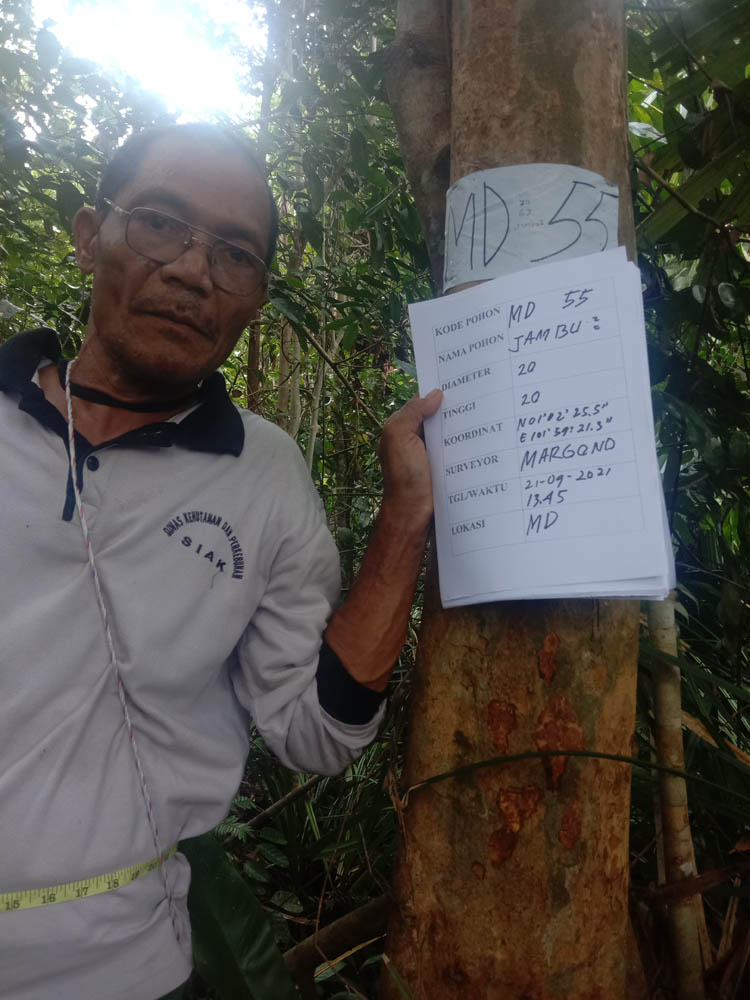 MD 55
KODE POHON MD 55
NAMA POHON JAMBU²
DIAMETER 20
TINGGI 20
KOORDINAT N 01°02'25.5"
E 101°59'21.3"
SURVEYOR MARGONO
TGL/WAKTU 21-09-2021
13.45
LOKASI MD
DINAS KEHUTANAN DAN PERKEBUNAN
SIAK
15 16 17 18 19